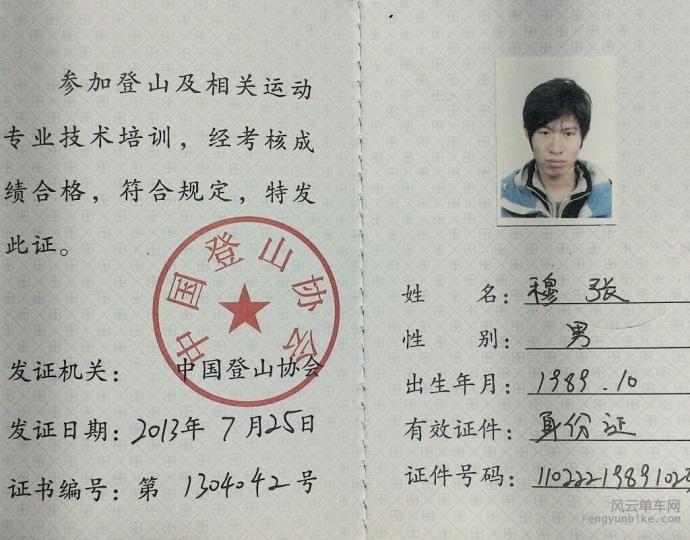 参加登山及相关运动
专业技术培训，经考核成
绩合格，符合规定，特发
此证。
中国登山协会
发证机关： 中国登山协会
发证日期：2013年 7月25日
证书编号：第 1304042 号
姓 名：穆 张
性 别：男
出生年月：1989.10
有效证件：身份证
证件号码：
风云单车网
Fengyunbike.com